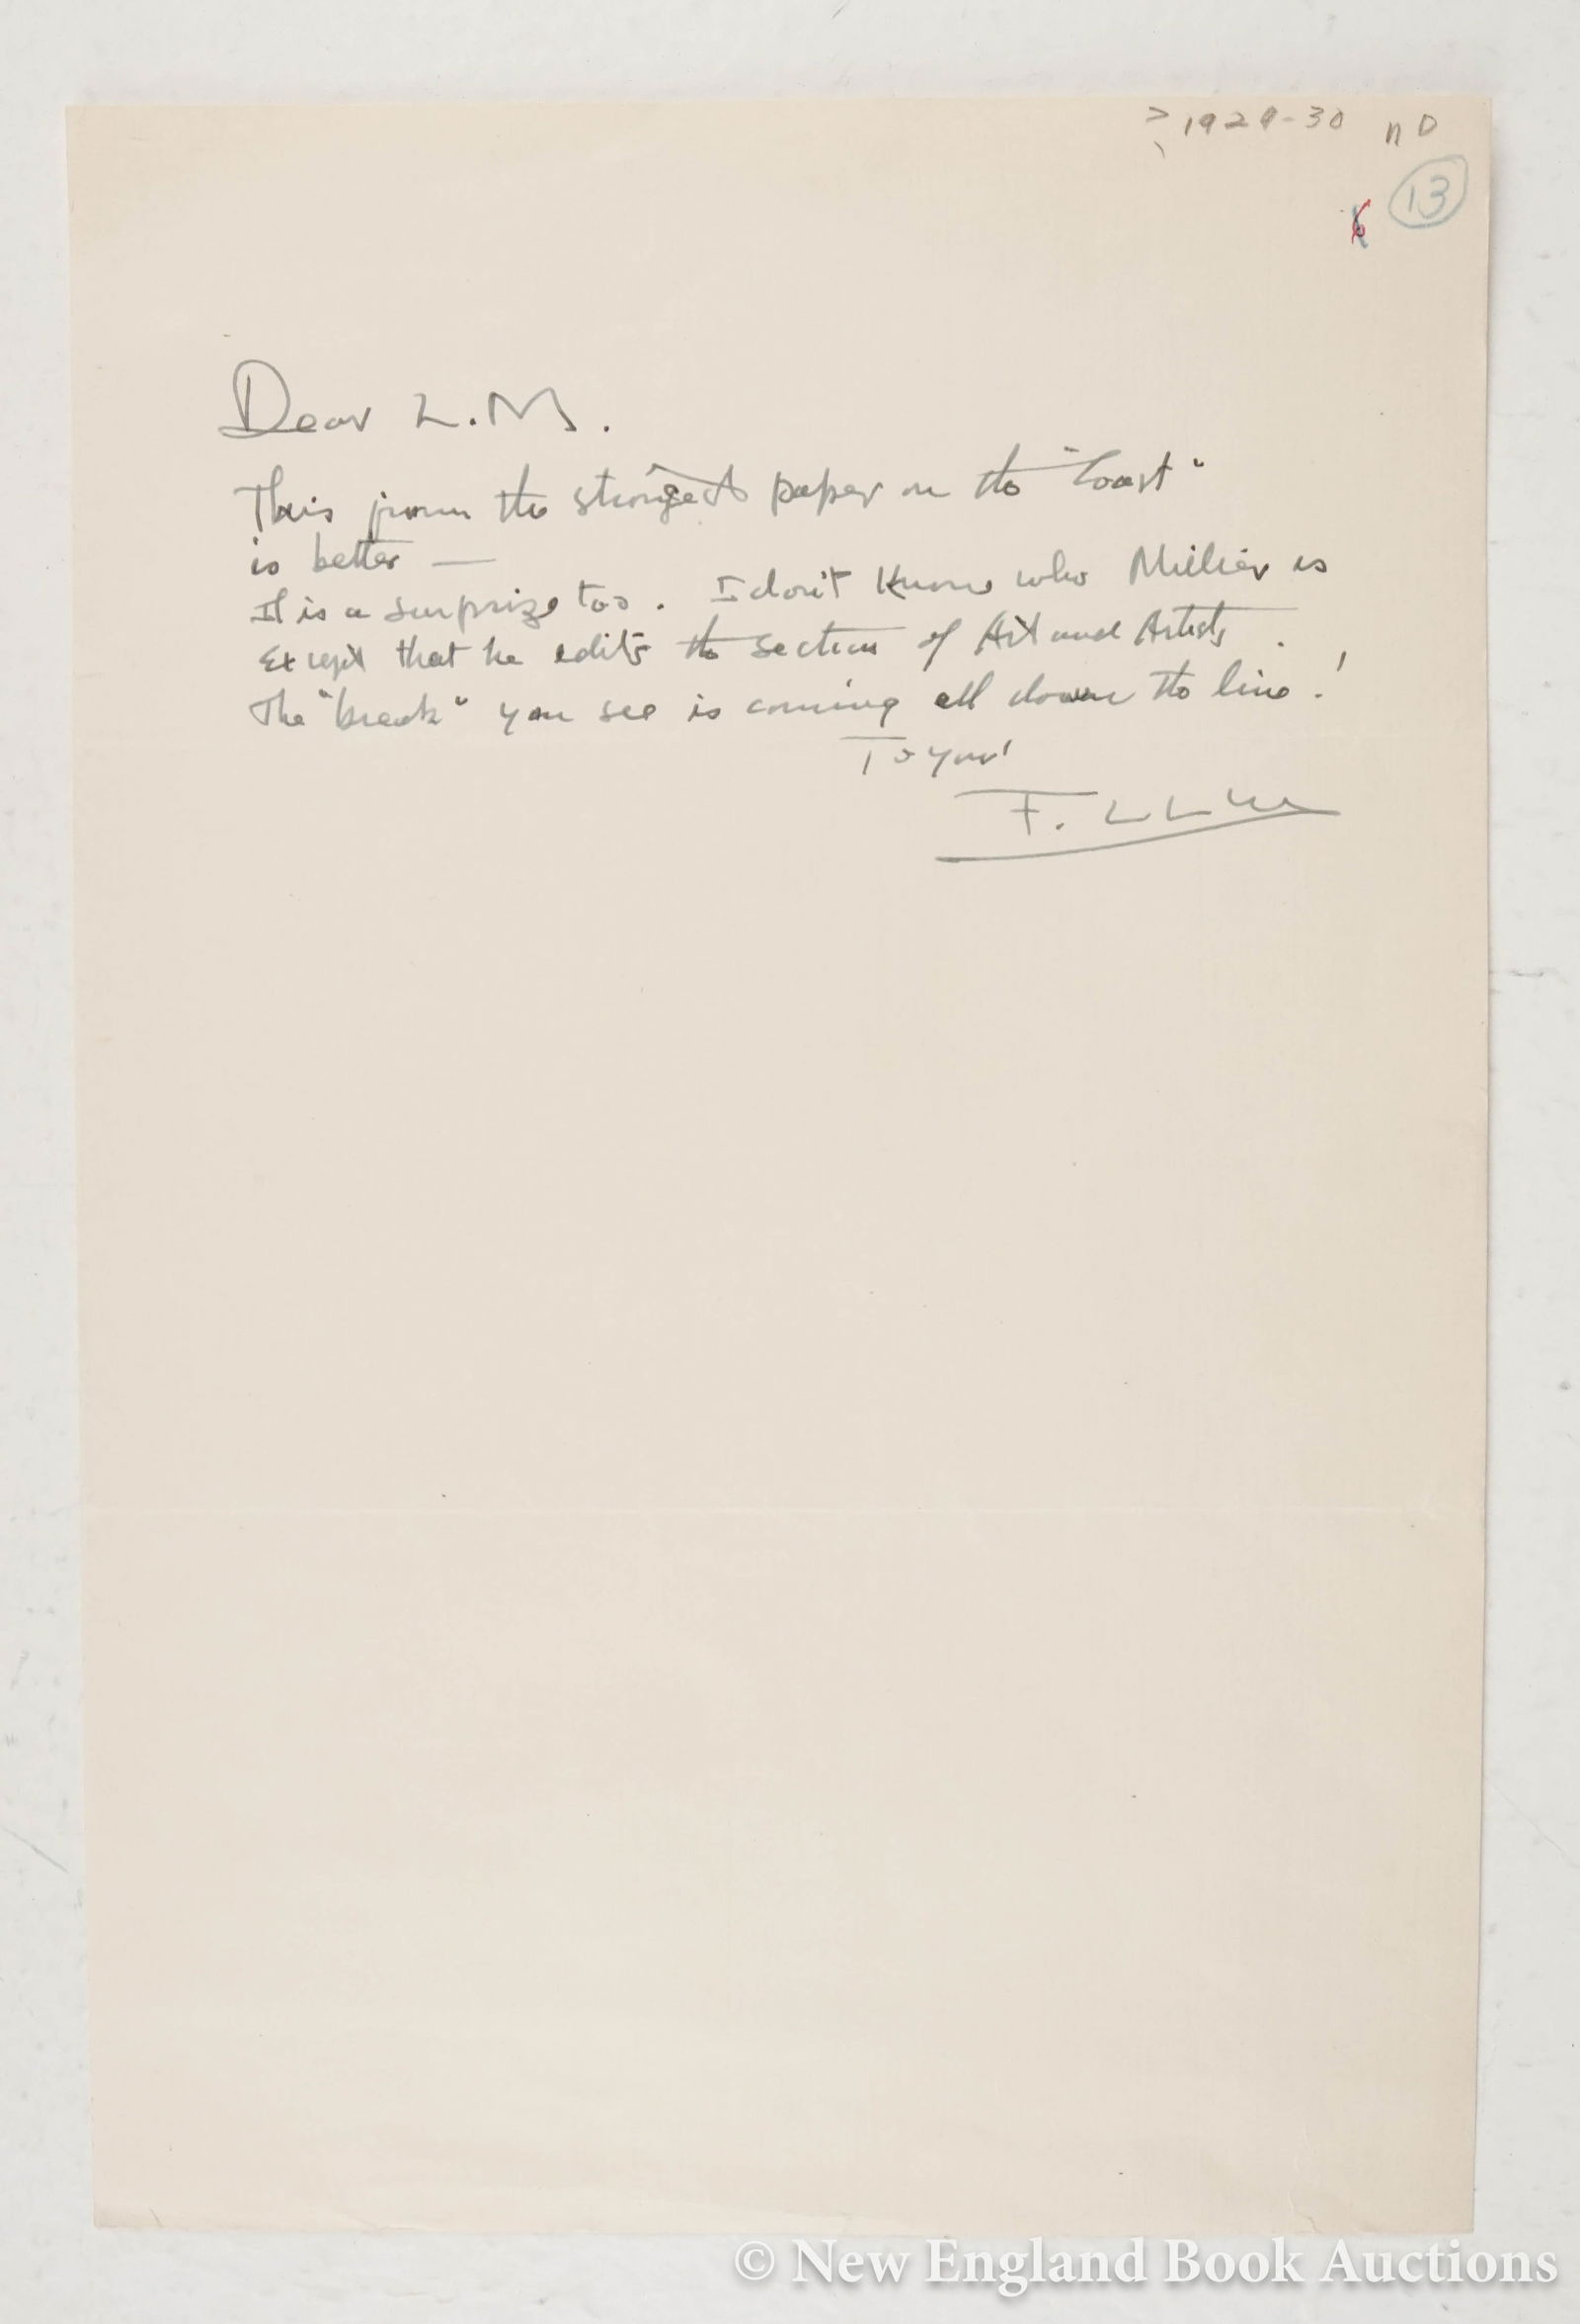 ? 1929-30 nD
13
6
Dear L.M.
This from the strongest paper on the "Coast"
is better —
It is a surprize too. I don't know who Millier is
Except that he edits the section of Art and Artists.
The "break" you see is coming all down the line!
To you!
F. LLW
© New England Book Auctions